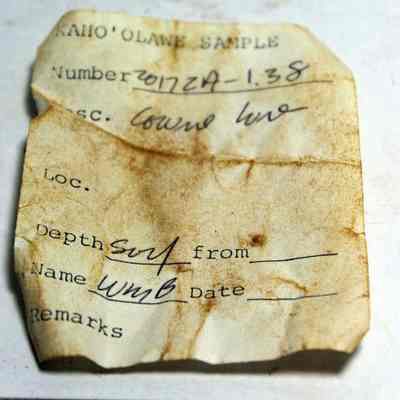 KAHO'OLAWE SAMPLE
Number 20172A-1.38
sc. Cowrie lure
Loc.
Depth Surf from
Name WMB Date
Remarks